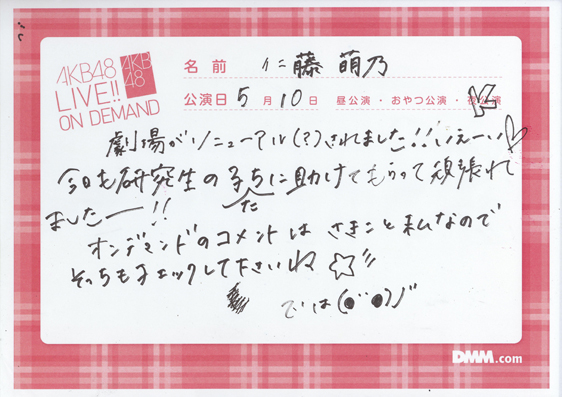 AKB48
LIVE!!
ON DEMAND
AKB
48
名前 仁藤 萌乃
公演日 5月10日 昼公演・おやつ公演・夜公演
劇場がリニューアル(?)されました!!いえーい♡
今日も研究生の子たちに助けてもらって頑張れ
ましたー!!
オンデマンドのコメントは さきこと私なので
そっちもチェックして下さいね☆
では(●˘●)ノ
DMM.com